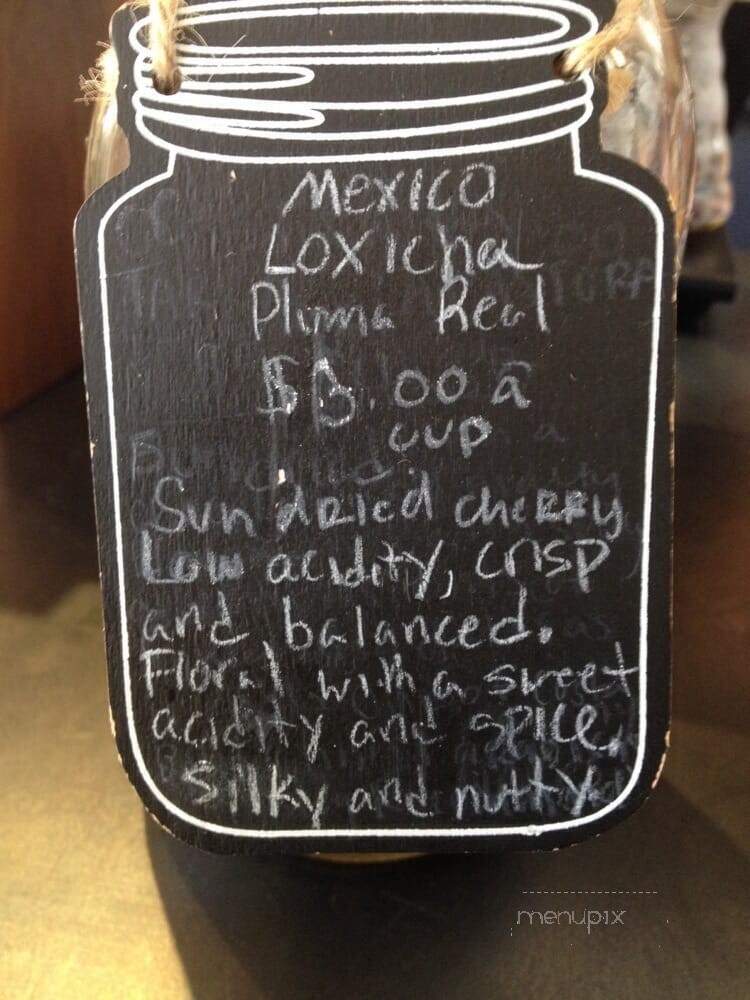 Mexico
Loxicha
Pluma Real
$3.00 a
cup
Sun dried cherry
Low acidity, crisp
and balanced.
Floral with a sweet
acidity and spice.
Silky and nutty
menupix